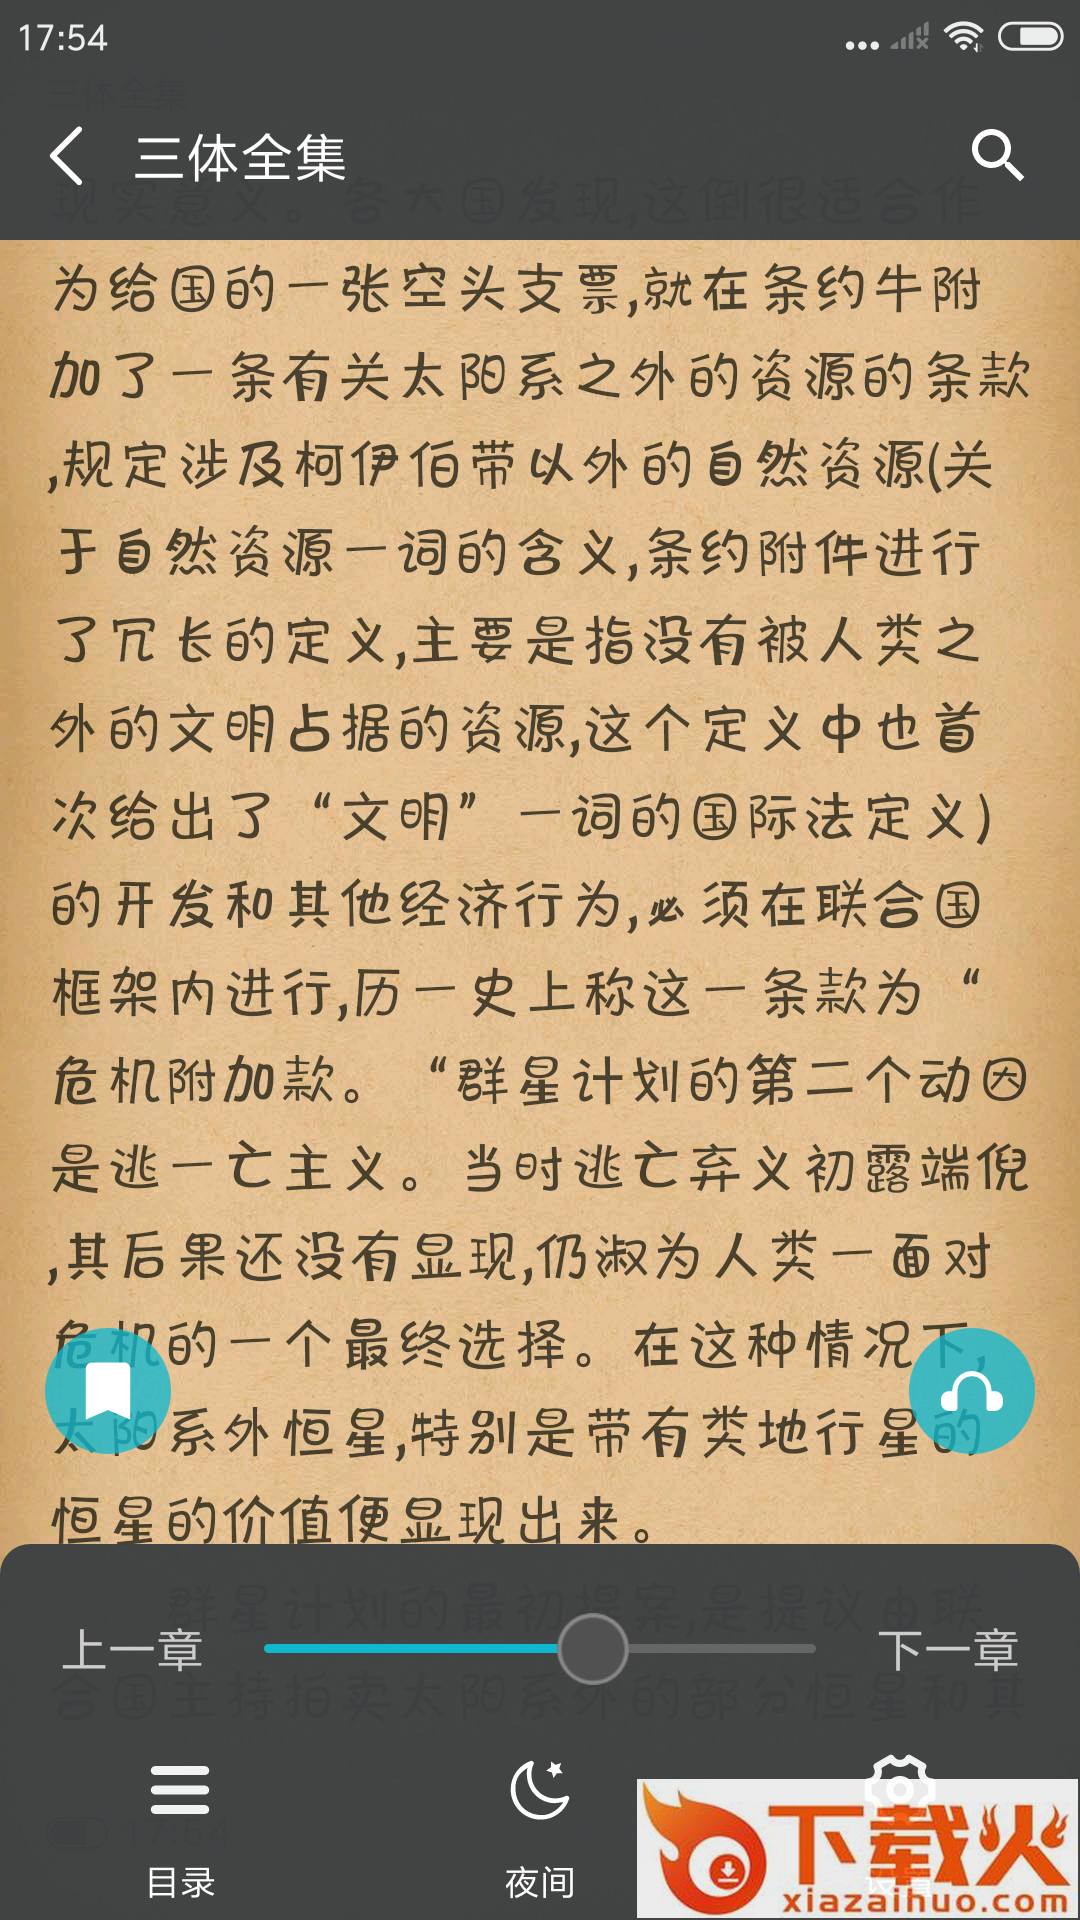 17:54
三体全集
三体全集
现实意义。各大国发现,这倒很适合作
为给国的一张空头支票,就在条约牛附
加了一条有关太阳系之外的资源的条款
,规定涉及柯伊伯带以外的自然资源(关
于自然资源一词的含义,条约附件进行
了冗长的定义,主要是指没有被人类之
外的文明占据的资源,这个定义中也首
次给出了“文明”一词的国际法定义)
的开发和其他经济行为,必须在联合国
框架内进行,历一史上称这一条款为“
危机附加款。“群星计划的第二个动因
是逃一亡主义。当时逃亡弃义初露端倪
,其后果还没有显现,仍淑为人类一面对
危机的一个最终选择。在这种情况下,
太阳系外恒星,特别是带有类地行星的
恒星的价值便显现出来。
群星计划的最初提案,是提议由联
合国主持拍卖太阳系外的部分恒星和其
上一章
下一章
17:54
目录
夜间
设置
下载火
xiazaihuo.com